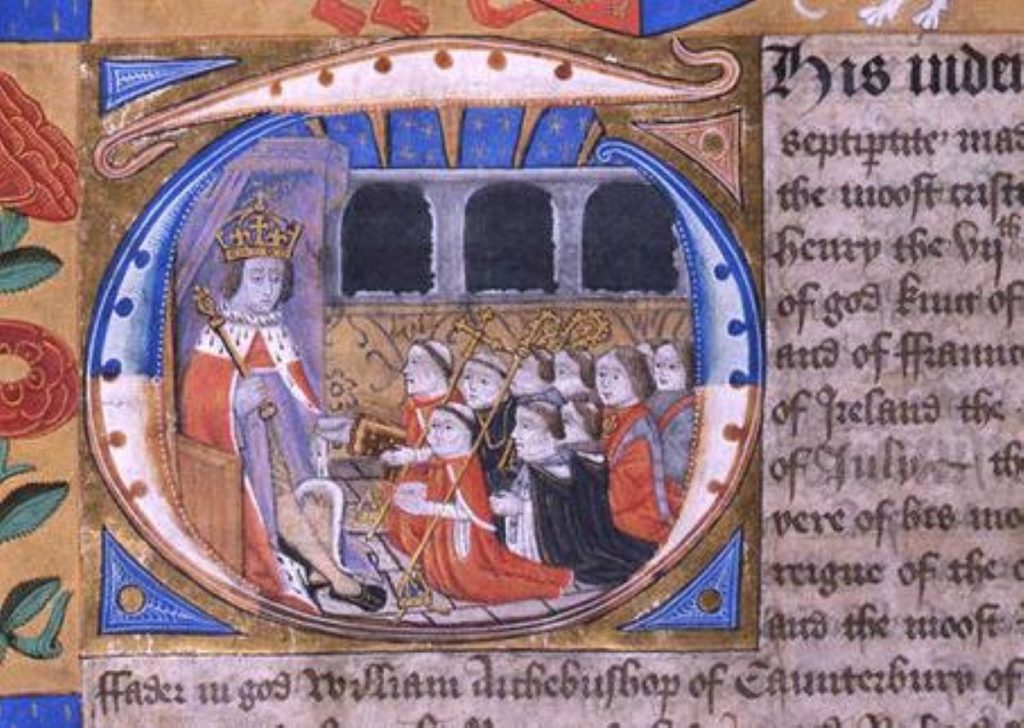 This inden
septiptite mad
the moost crist
henry the vijth
of god king of
and of ffraunc
of Ireland the
of July the
yere of his mo
reigne of the c
and the moost
ffader in god William Archebisshop of Caunterbury of